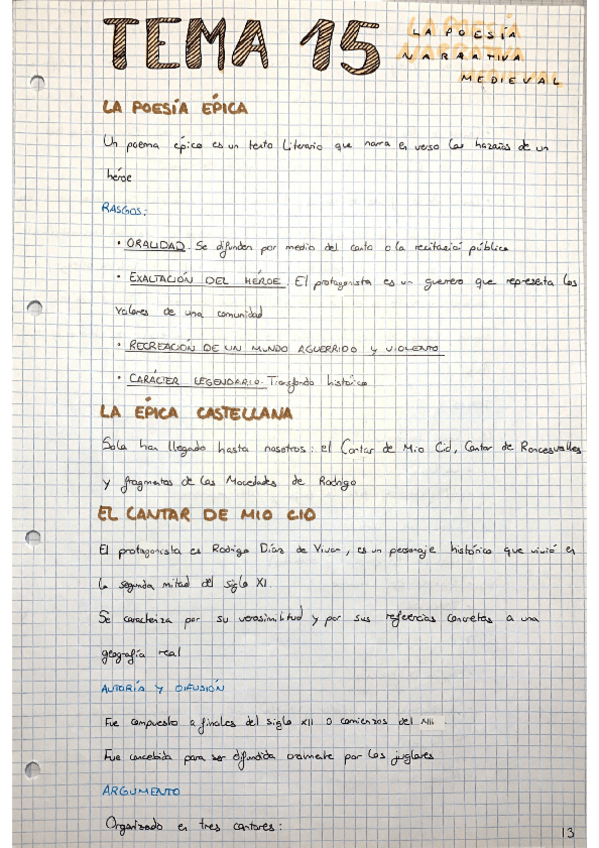 TEMA 15
LA POESÍA
NARRATIVA
MEDIEVAL
LA POESÍA ÉPICA
Un poema épico es un texto literario que narra en verso las hazañas de un
héroe
RASGOS:
· ORALIDAD. Se difunden por medio del canto o la recitació pública
· EXALTACIÓN DEL HÉROE. El protagonista es un guerrero que representa los
valores de una comunidad
· RECREACIÓN DE UN MUNDO AGUERRIDO Y VIOLENTO
· CARÁCTER LEGENDARIO. Transfondo histórico
LA ÉPICA CASTELLANA
Solo han llegado hasta nosotros: el Cantar de Mio Cid, Cantar de Roncesvalles
y fragmentos de las Mocedades de Rodrigo
EL CANTAR DE MIO CID
El protagonista es Rodrigo Díaz de Vivar, es un personaje histórico que vivió en
la segunda mitad del siglo XI
Se caracteriza por su verosimilitud y por sus referencias concretas a una
geografía real
AUTORÍA Y DIFUSIÓN
Fue compuesto a finales del siglo XII o comienzos del XIII.
Fue concebida para ser difundida oralmente por los juglares
ARGUMENTO
Organizado en tres cantares:
13